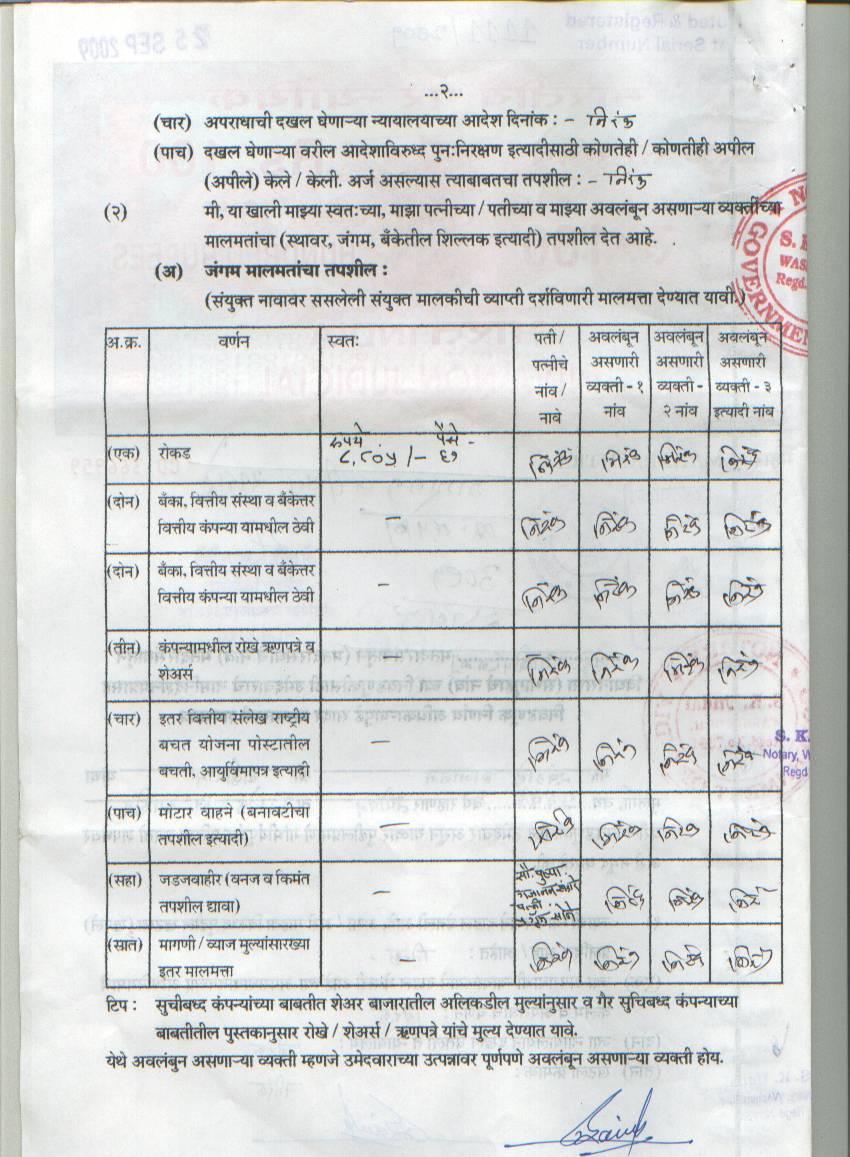 ...२...
(चार) अपराधाची दखल घेणाऱ्या न्यायालयाच्या आदेश दिनांक : - निरंक
(पाच) दखल घेणाऱ्या वरील आदेशाविरुध्द पुन:निरक्षण इत्यादीसाठी कोणतेही / कोणतीही अपील
(अपीले) केले / केली. अर्ज असल्यास त्याबाबतचा तपशील : - निरंक
(२) मी, या खाली माझ्या स्वत:च्या, माझा पत्नीच्या / पतीच्या व माझ्या अवलंबून असणाऱ्या व्यक्तींच्या
मालमतांचा (स्थावर, जंगम, बँकेतील शिल्लक इत्यादी) तपशील देत आहे.
(अ) जंगम मालमतांचा तपशील :
(संयुक्त नावावर ससलेली संयुक्त मालकीची व्याप्ती दर्शविणारी मालमत्ता देण्यात यावी.)
अ.क्र. वर्णन स्वत: पती / पत्नीचे नांव / नावे अवलंबून असणारी व्यक्ती - १ नांव अवलंबून असणारी व्यक्ती - २ नांव अवलंबून असणारी व्यक्ती - ३ इत्यादी नांव
(एक) रोकड रुपये पैसे - ८,८०५/- ६७ निरंक निरंक निरंक निरंक
(दोन) बँका, वित्तीय संस्था व बँकेत्तर वित्तीय कंपन्या यामधील ठेवी - निरंक निरंक निरंक निरंक
(दोन) बँका, वित्तीय संस्था व बँकेत्तर वित्तीय कंपन्या यामधील ठेवी - निरंक निरंक निरंक निरंक
(तीन) कंपन्यामधील रोखे ऋणपत्रे व शेअर्स - निरंक निरंक निरंक निरंक
(चार) इतर वित्तीय संलेख राष्ट्रीय बचत योजना पोस्टातील बचती, आयुर्विमापत्र इत्यादी - निरंक निरंक निरंक निरंक
(पाच) मोटार वाहने (बनावटीचा तपशील इत्यादी) - निरंक निरंक निरंक निरंक
(सहा) जडजवाहीर (वनज व किमंत तपशील द्यावा) - सौ. पुष्पा निरंक निरंक निरंक
(सात) मागणी / व्याज मुल्यांसारख्या इतर मालमत्ता - निरंक निरंक निरंक निरंक
टिप : सुचीबध्द कंपन्यांच्या बाबतीत शेअर बाजारातील अलिकडील मुल्यांनुसार व गैर सुचिबध्द कंपन्याच्या
बाबतीतील पुस्तकानुसार रोखे / शेअर्स / ऋणपत्रे यांचे मुल्य देण्यात यावे.
येथे अवलंबुन असणाऱ्या व्यक्ती म्हणजे उमेदवाराच्या उत्पन्नावर पूर्णपणे अवलंबून असणाऱ्या व्यक्ती होय.
GOVERNMEN
S. K
WAS
Regd.
S. K.
Notary, W
Regd
25 SEP 2009